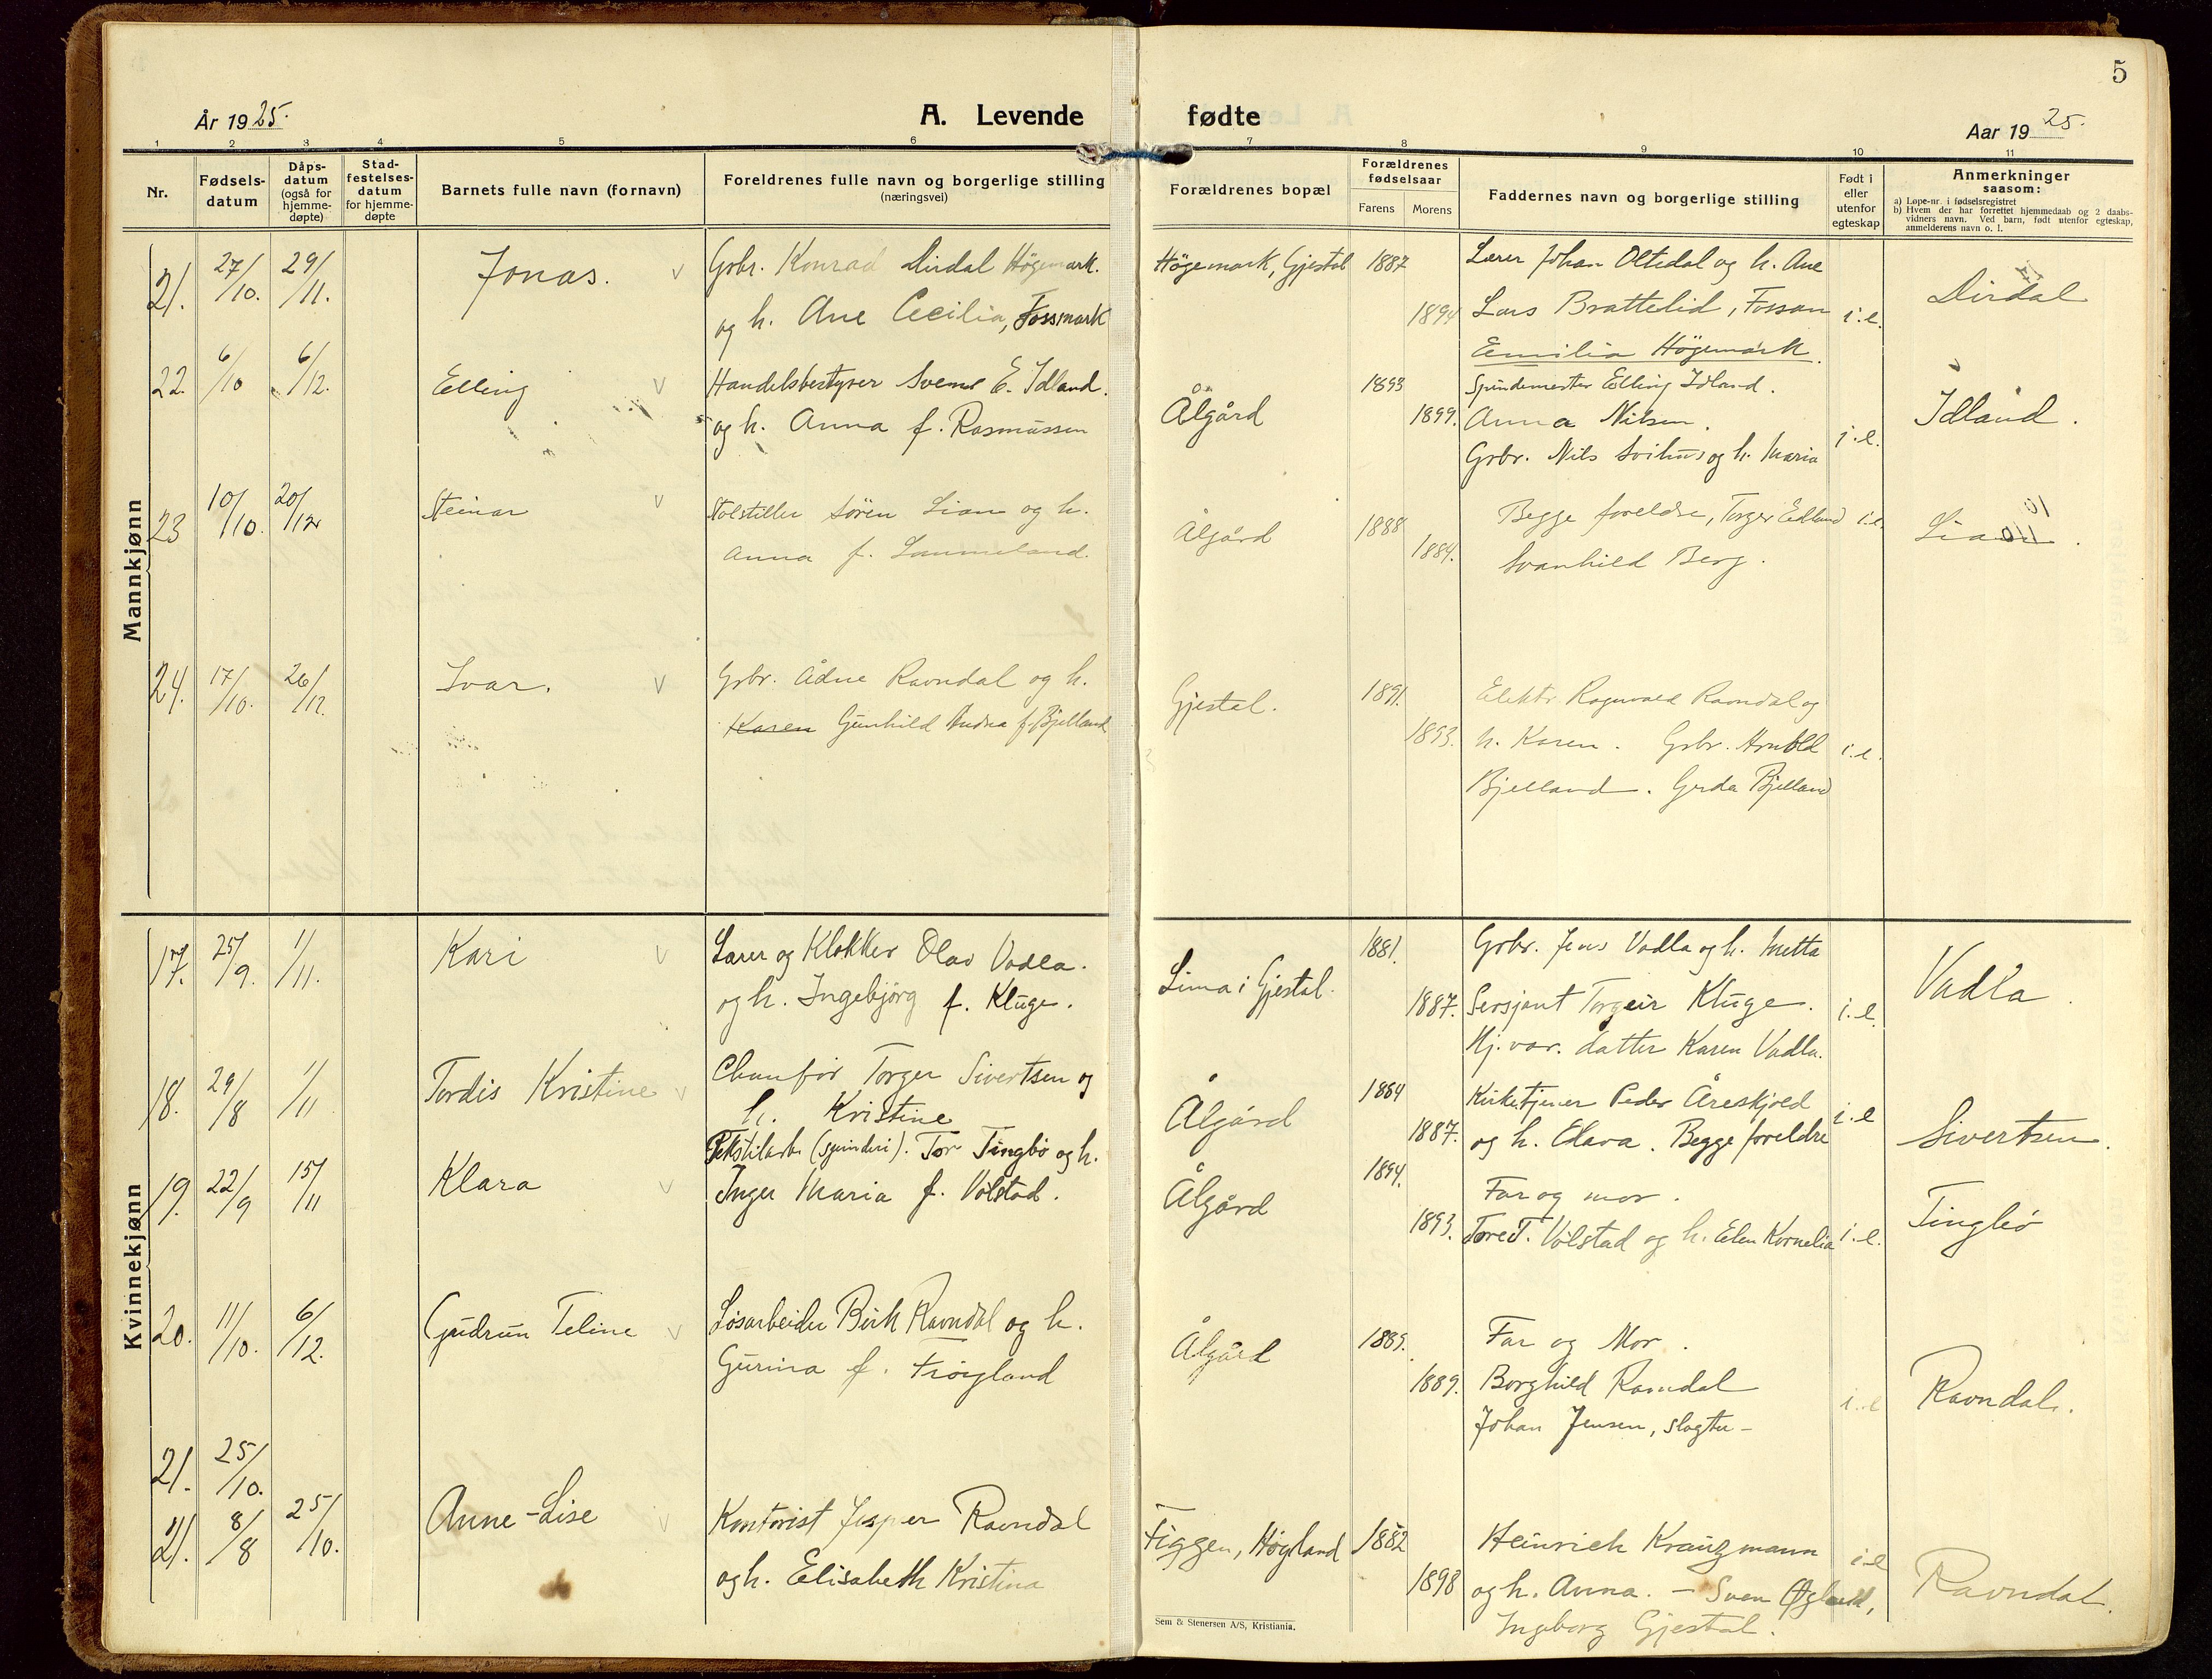 5
År 1925.
A. Levende fødte
Aar 1925.
1 2 3 4 5 6 7 8 9 10 11
Nr.
Fødsels-
datum
Dåps-
datum
(også for
hjemme-
døpte)
Stad-
festelses-
datum
for hjemme-
døpte
Barnets fulle navn (fornavn)
Foreldrenes fulle navn og borgerlige stilling
(næringsvei)
Forældrenes bopæl
Forældrenes
fødselsaar
Farens Morens
Faddernes navn og borgerlige stilling
Født i
eller
utenfor
egteskap
Anmerkninger
saasom:
a) Løpe-nr. i fødselsregistret
b) Hvem der har forrettet hjemmedaab og 2 daabs-
vidners navn. Ved barn, født utenfor egteskap,
anmelderens navn o. l.
Mannkjønn
21. 27/10. 29/11. Jonas. v Grbr. Konrad Dirdal Högemark. Högemark, Gjestal 1887 Lærer Johan Oltedal og h. Ane
og h. Ane Cecilia, Fossmark 1894 Lars Brattelid, Fossan i.e. Dirdal
Emilia Högemark.
22. 6/10 6/12. Elling v Handelsbestyrer Svend E. Idland. Ålgård 1893 Spindemester Elling Idland.
og h. Anna f. Rasmussen 1899. Anna Nilsen. i.e. Idland.
Grbr. Nils Svihus og h. Maria
23 10/10. 20/12 Steinar v Stolstiller Sören Lian og h. Ålgård 1888 Begge foreldre, Torger Edland i.e. Lian.
Anna f. Sammeland. 1884. Svanhild Berg.
24. 17/10. 26/12. Ivar. v Grbr. Ådne Ravndal og h. Gjestal. 1891. Elektr. Ragnvald Ravndal og
Karen Gunhild Andrea f. Bjelland 1893. h. Karen. Grbr. Arnold i.e.
Bjelland. Gerda Bjelland
Kvinnekjønn
17. 25/9. 1/11. Kari v Lærer og Klokker Olav Vadla. Lima i Gjestal. 1881. Grbr. Jens Vadla og h. Metta
og h. Ingebjörg f. Kluge. 1887. Sersjant Torgeir Kluge. i.e. Vadla.
Hj.vær. datter Karen Vadla.
18. 29/8 1/11 Tordis Kristine v Chauför Torger Sivertsen og Ålgård 1884 Kirketjener Peder Åreskjold i.e
h. Kristine 1887. og h. Elava. Begge foreldre Sivertsen.
19. 22/9 15/11 Klara v Tekstilarb. (spinderi). Tor Tingbö og h. Ålgård 1894. Far og mor.
Inger Maria f. Vølstad. 1893. Tore T. Vølstad og h. Elen Kornelia i.e. Tingbö
20. 11/10. 6/12. Gudrun Teline v Løsarbeider Berk Ravndal og h. Ålgård 1889. Far og Mor.
Gurina f. Fröyland 1889. Borghild Ravndal i.e Ravndal.
Johan Jensen, slagter-
21. 25/10.
21. 8/8 25/10. Anne-Lise v Kontorist Jesper Ravndal Figgen, Høyland 1882 Heinrich Kranzmann i.e
og h. Elisabeth Kristina 1898 og h. Anna. - Sven Øglend, Ravndal.
Ingeborg Gjestal.
Sem & Stenersen A/S, Kristiania.